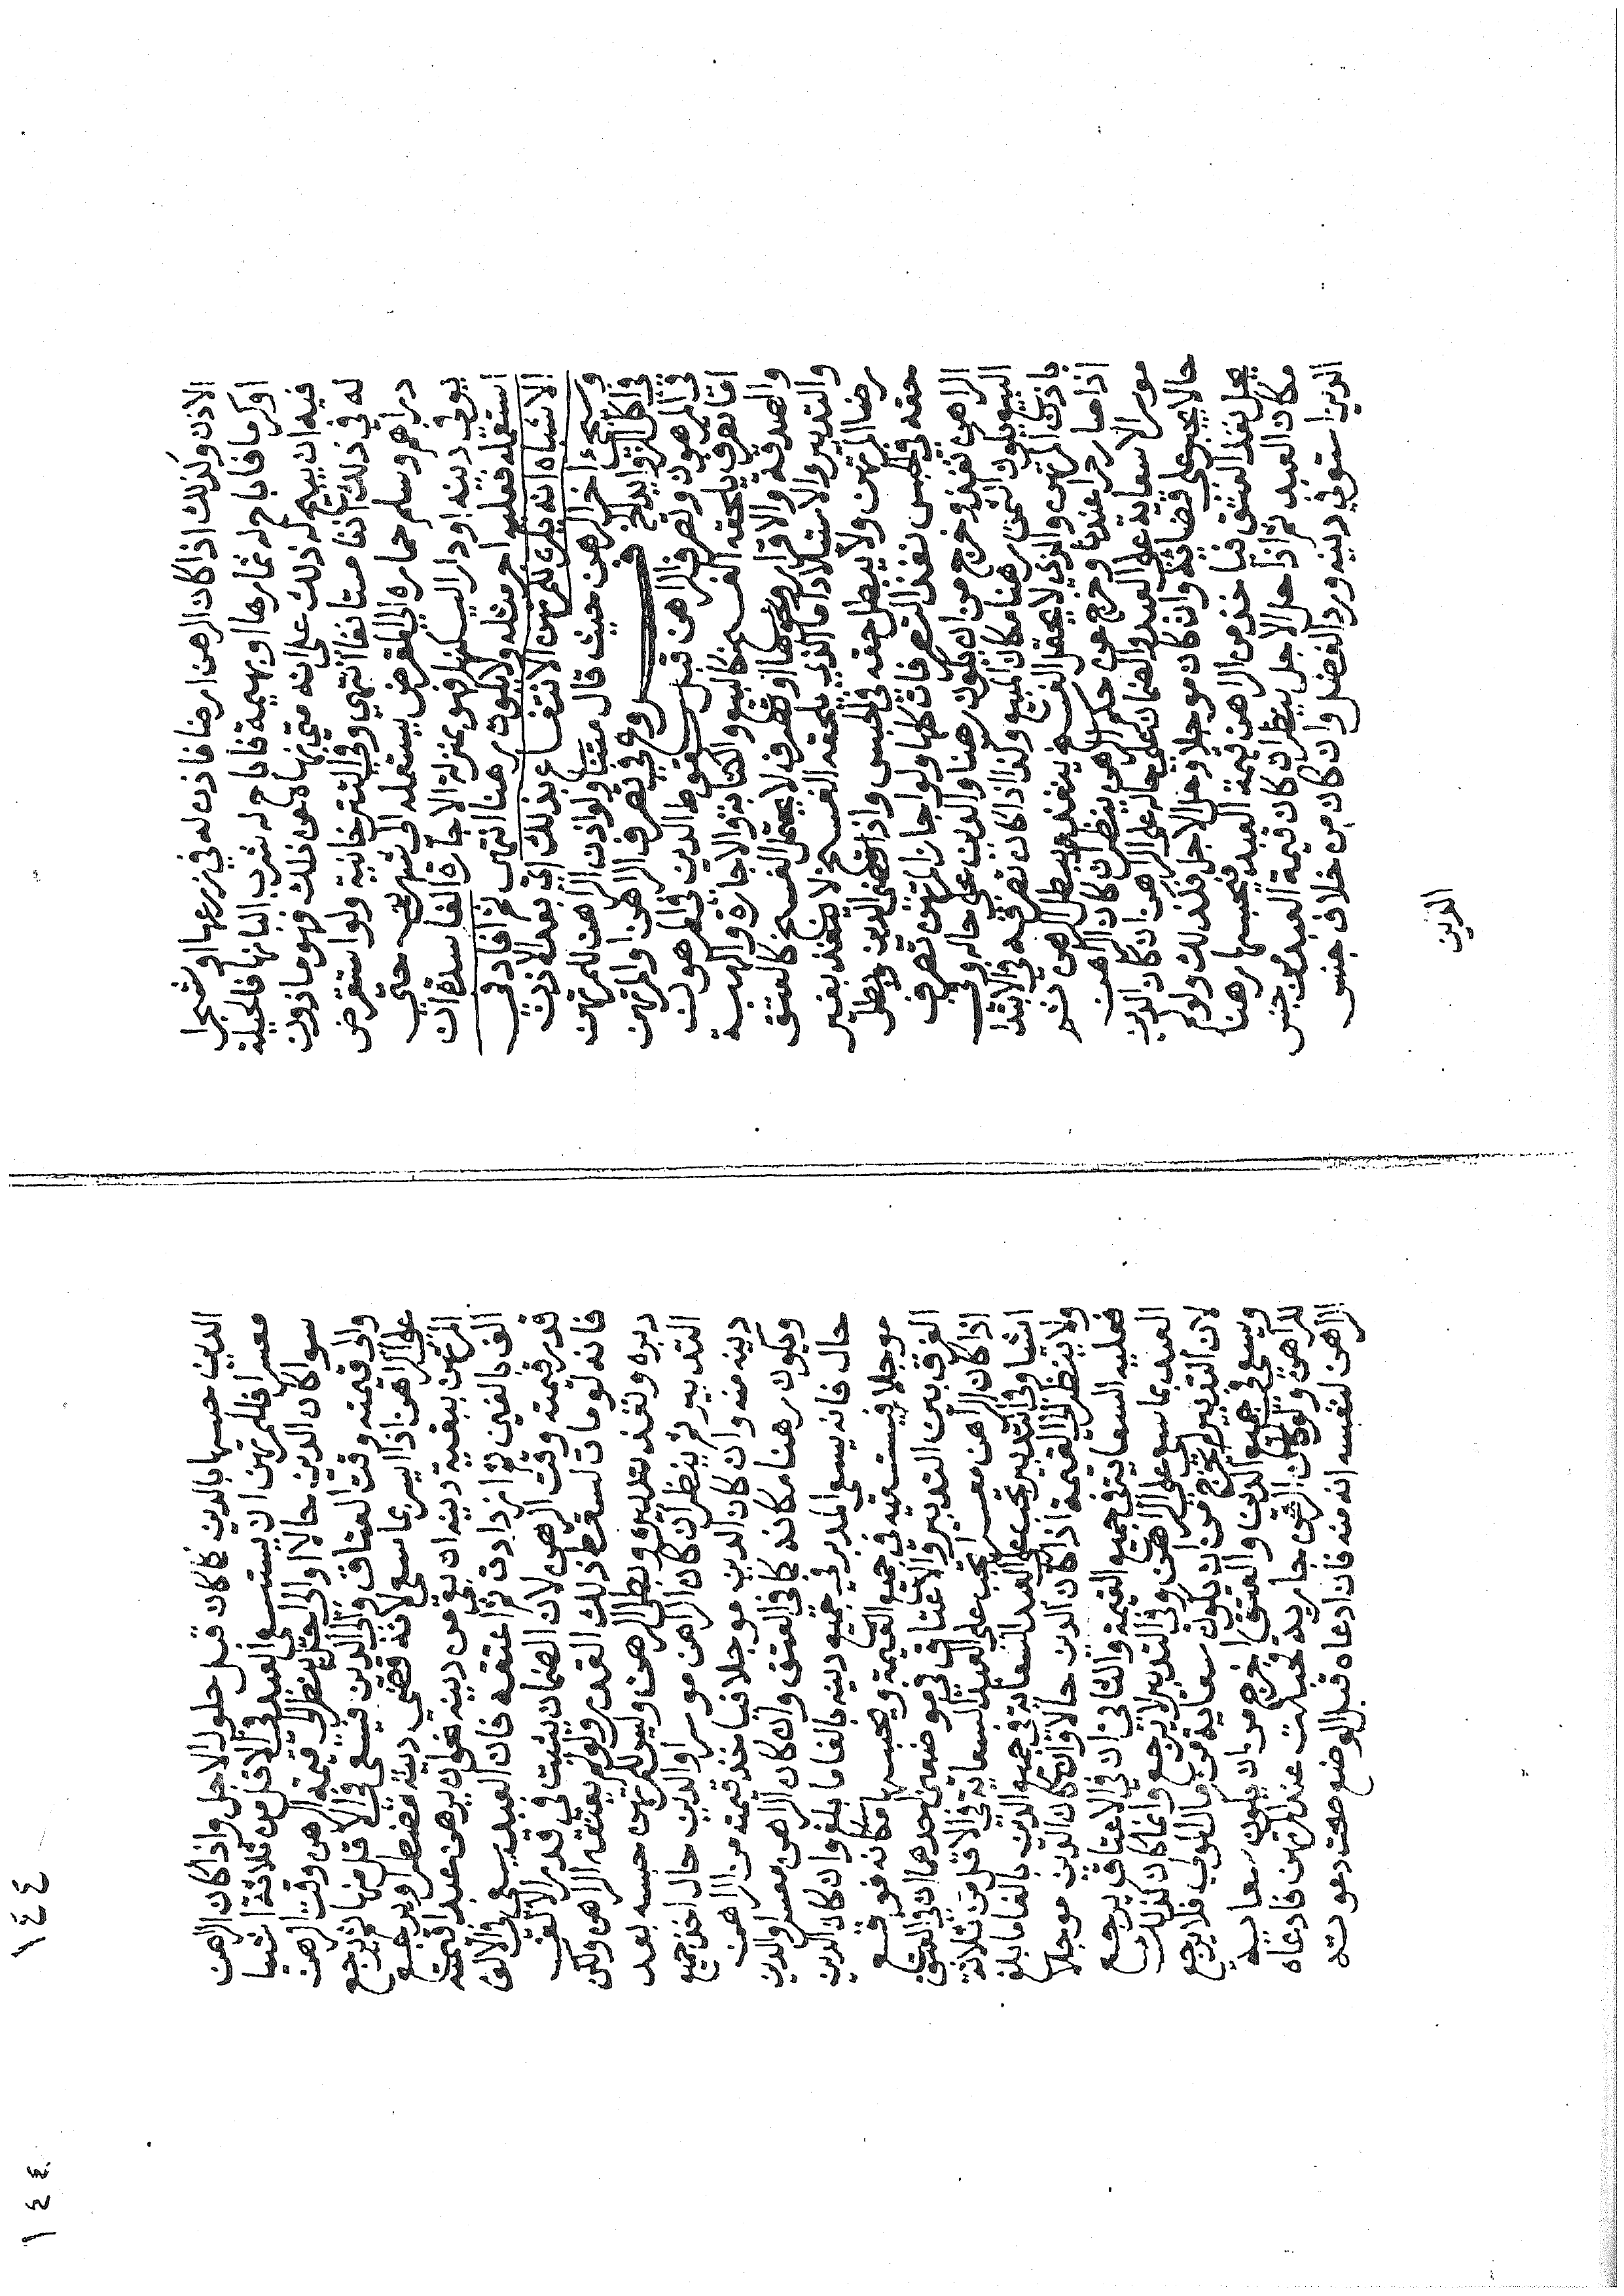 الاذن وكذلك اذا كان الرهن ارضا فاذن له في زرعها او شجرا
او كرما فاباح له ثمارها او بهيمة فاباح له شرب البانها فالحيلة
فيه ان يبيح له ذلك على انه متى نهاه عن ذلك فهو ماذون
له في ذلك اذنا مستانفا انتهى وفي التتر خانية ولو استقرض
دراهم وسلم حماره الى المقرض يستعمله الى شهرين حتى
يوفي دينه او دار اليسكنها فهو بمنزلة الاجارة الفاسدة ان
استعمله فعليه اجر مثله ولا يكون رهنا انتهى ثم افاد في
الاشباه انه يكره للمرتهن الانتفاع بذلك اي بعد الاذن
وسيجيء اخر الرهن حيث قال مننا ولو اذن الراهن للمرتهن
في اكل الزوايد الخ فروع في تصرف الراهن او المرتهن
في المرهون وتصرف الراهن قبل سقوط الدين في المرهون
اما تصرف يلحقه الفسخ كالبيع والكتابة والاجارة والهبة
والصدقة والاقرار ونحوها او تصرف لا يحتمل الفسخ كالعتق
والتدبير والاستيلاد اما الذي يلحقه الفسخ لا ينفذ بغير
رضا المرتهن ولا يبطل حقه في الحبس واذا قضى الدين وبطل
حقه في الحبس نفذ التصرفات كلها ولو اجاز المرتهن تصرف
الراهن نفذ وخرج من ان يكون رهنا والدين على حاله وفي
البيع يكون الثمن رهنا مكان المبيع وكذا اذا كان تصرفه في الابتدا
باذن المرتهن والذي لا يحتمل الفسخ ينفذ ويبطل الرهن ثم
اذا صار حرا عندنا وخرج عن حكم الرهن ينظر ان كان الراهن
موسرا لا سعاية على العبد والضمان على حاله على الراهن ان كان الدين
حالا يجبر على قضائه وان كان موجلا وحل الاجل فكذلك ولو لم
يحل نفذ العتق فياخذ من الراهن قيمة العبد فيحبسها رهنا
مكان العبد ثم اذا حل الاجل ينظر ان كان قيمة العبد من جنس
الدين استوفي دينه ورد الفضل وان كان من خلاف جنس
الدين
الدين حبسها بالدين كما كان قبل حلول الاجل واذا كان الراهن
معسرا فللمرتهن ان يستسعى العبد في الاقل من ثلاثة اشيا
سوا كان الدين حالا او الى اجل ينظر الى قيمة الرهن وقت الرهن
والى قيمته وقت العتاق والى الدين فيسعى في الاقل منها ثم يرجع
على الراهن اذا ايسر بما سعى لانه قضى دينه مضطرا ويرجع
المرتهن ببقية دينه ان بقي من دينه نحو ان يرهن عبدا قيمته
الف بالفين ثم ازدادت ثم اعتقه فان العبد يسعى في الالف
قدر قيمته وقت الرهن لان الضمان يثبت في قدر الالف
فانه لو مات لسقط ذلك القدر ولو لم يعتقه الراهن ولكن
دبره ونفذ تدبيره وبطل الرهن وليس للمرتهن حبسه بعد
التدبير ثم ينظر ان كان الراهن موسرا والدين حال اخذ جميع
دينه منه وان كان الدين موجلا فياخذ قيمته من الراهن
ويكون رهنا مكانه كما في العتق وان كان الراهن معسرا والدين
حال فانه يسعى المدبر في جميع دينه بالغا ما بلغ وان كان الدين
موجلا فيستسعيه في جميع القيمة ويحبسها مكانه فوقع
الفرق بين التدبير والاعتاق في موضعين احدهما ان في العتق
اذا كان الراهن معسرا يجب على العبد السعاية في الاقل من ثلاثة
اشيا وفي التدبير يجب على العبد السعاية في جميع الدين بالغا ما بلغ
ولا ينظر الى القيمة اذا كان الدين حالا وان كان الدين موجلا
فعليه السعاية في جميع القيمة والثاني ان في الاعتاق يرجع
العبد بما سعى على الراهن وفي التدبير لا يرجع وانما كان كذلك
لان التدبير لم يخرج من ان يكون سعاية من مال المولى فلا يرجع
ويسعى في جميع الدين والعتق اخرج من ان يكون سعاية
للراهن ولو كان الرهن جارية فحبلت عند المرتهن فادعاه
الراهن لنفسه انه منه فان ادعاه قبل الوضع صحت دعوته
١٤٤
١٤٤